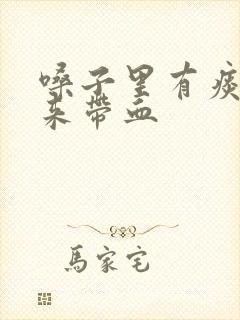 嗓子里有痰
来带血
馬家宅